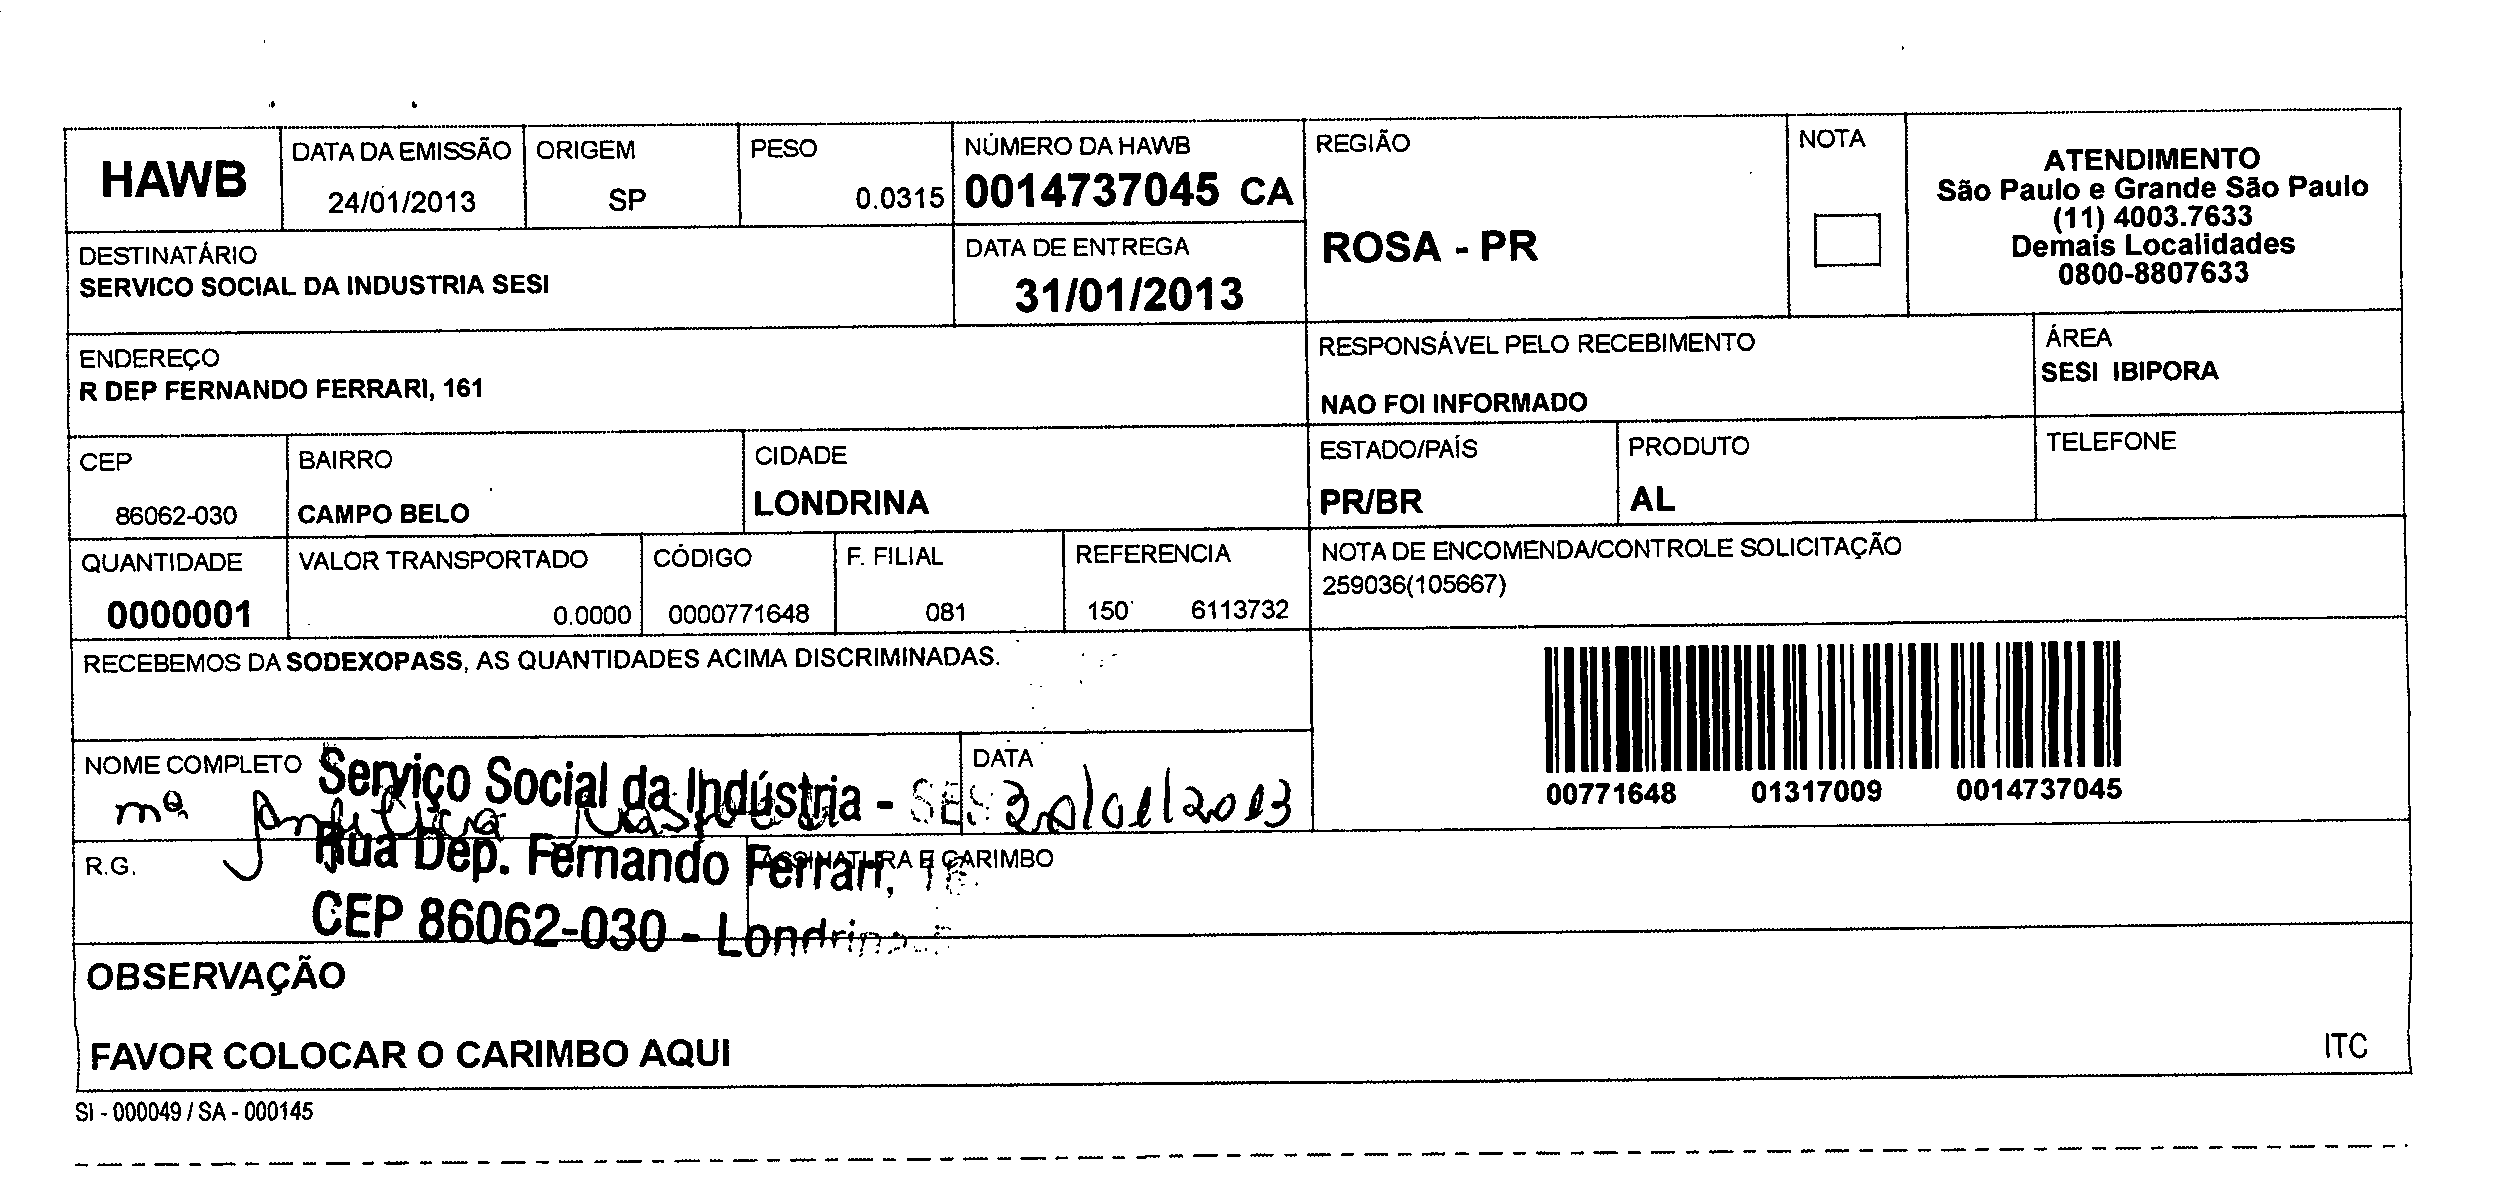 HAWB
DATA DA EMISSÃO
24/01/2013
ORIGEM
SP
PESO
0.0315
NÚMERO DA HAWB
0014737045 CA
REGIÃO
ROSA - PR
NOTA
ATENDIMENTO
São Paulo e Grande São Paulo
(11) 4003.7633
Demais Localidades
0800-8807633
DESTINATÁRIO
SERVICO SOCIAL DA INDUSTRIA SESI
DATA DE ENTREGA
31/01/2013
ENDEREÇO
R DEP FERNANDO FERRARI, 161
RESPONSÁVEL PELO RECEBIMENTO
NAO FOI INFORMADO
ÁREA
SESI IBIPORA
CEP
86062-030
BAIRRO
CAMPO BELO
CIDADE
LONDRINA
ESTADO/PAÍS
PR/BR
PRODUTO
AL
TELEFONE
QUANTIDADE
0000001
VALOR TRANSPORTADO
0.0000
CÓDIGO
0000771648
F. FILIAL
081
REFERENCIA
150 6113732
NOTA DE ENCOMENDA/CONTROLE SOLICITAÇÃO
259036(105667)
RECEBEMOS DA SODEXOPASS, AS QUANTIDADES ACIMA DISCRIMINADAS.
00771648 01317009 0014737045
NOME COMPLETO
Serviço Social da Indústria -
mª
DATA
/01/2013
R.G.
Rua Dep. Fernando Ferrari,
ASSINATURA E CARIMBO
CEP 86062-030 - Londrina
OBSERVAÇÃO
FAVOR COLOCAR O CARIMBO AQUI
ITC
SI - 000049 / SA - 000145